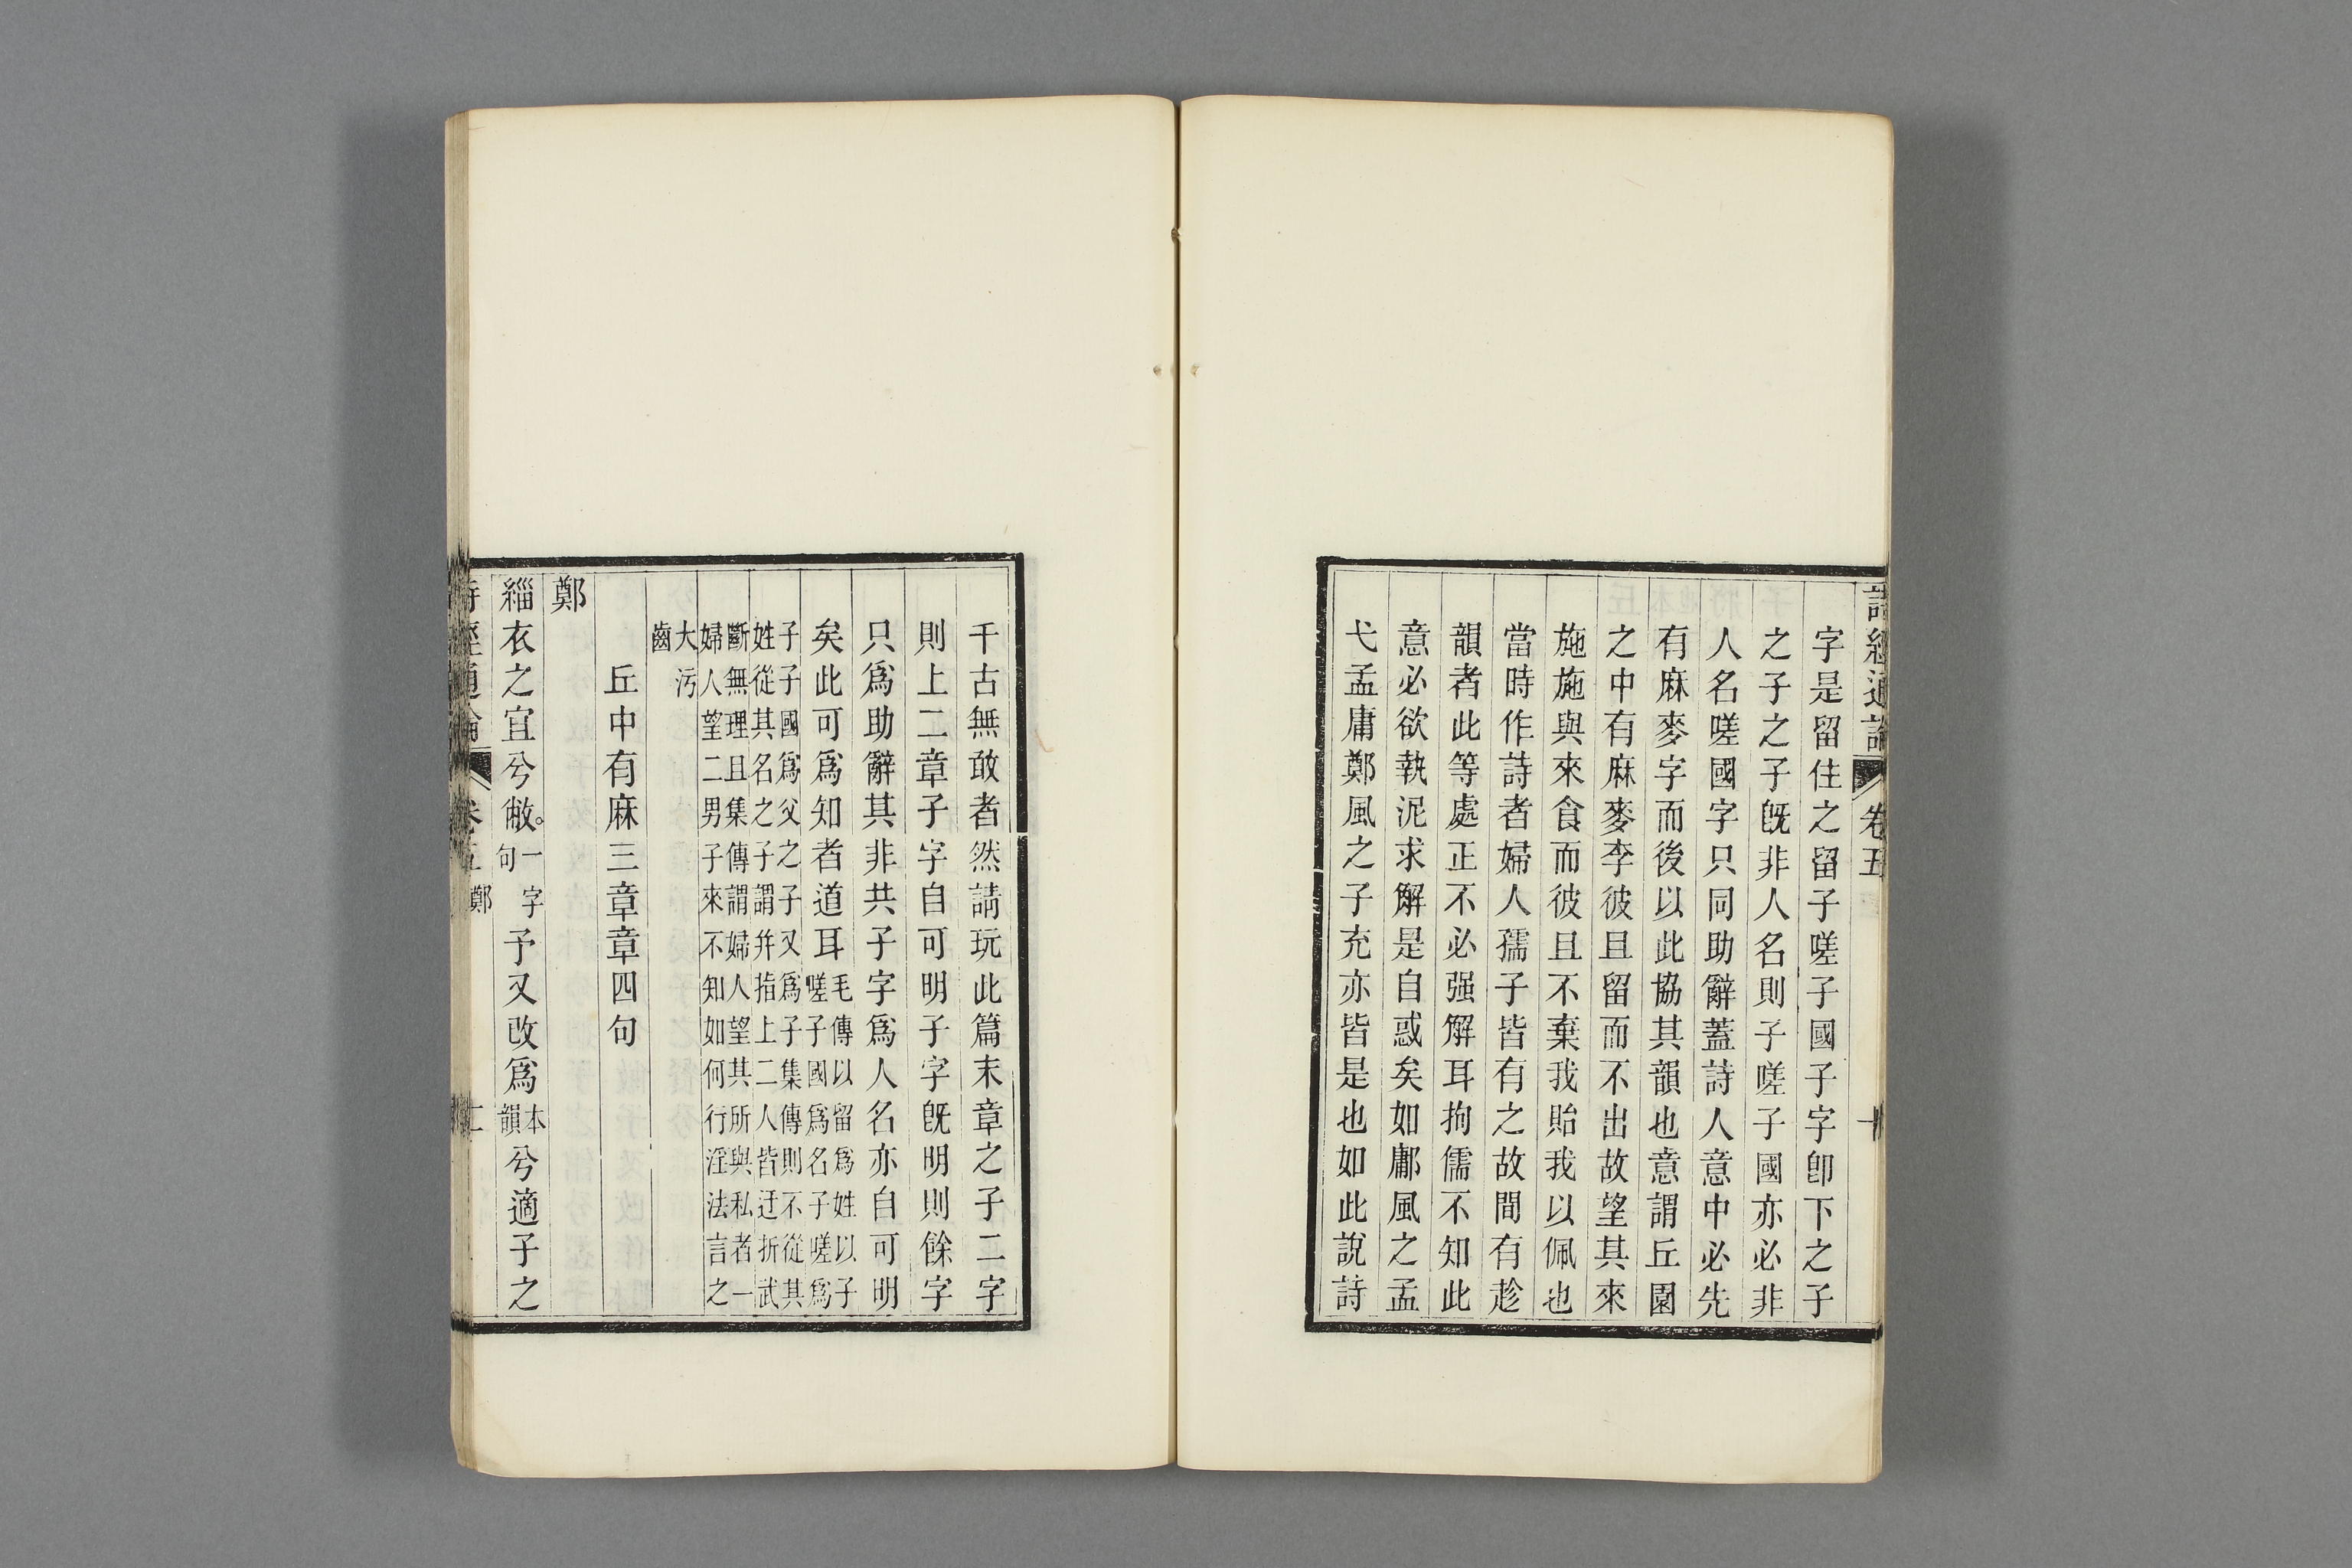 詩經通論 卷五 十
字是留住之留子嗟子國子字卽下之子
之子之子旣非人名則子嗟子國亦必非
人名嗟國字只同助辭蓋詩人意中必先
有麻麥字而後以此協其韻也意謂丘園
之中有麻麥李彼且留而不出故望其來
施施與來食而彼且不棄我貽我以佩也
當時作詩者婦人孺子皆有之故間有趁
韻者此等處正不必强解耳拘儒不知此
意必欲執泥求解是自惑矣如鄘風之孟
弋孟庸鄭風之子充亦皆是也如此說詩
千古無敢者然請玩此篇末章之子二字
則上二章子字自可明子字旣明則餘字
只爲助辭其非共子字爲人名亦自可明
矣此可爲知者道耳毛傳以留爲姓以子
嗟子國爲名子嗟爲
子子國爲父之子又爲子集傳則不從其
姓從其名之子謂幷指上二人皆迂折武
斷無理且集傳謂婦人望其所與私者一
婦人望二男子來不知如何行淫法言之
大污
齒
丘中有麻三章章四句
鄭
緇衣之宜兮敝。一字
句予又改爲本
韻兮適子之
詩經通論 卷五 鄭